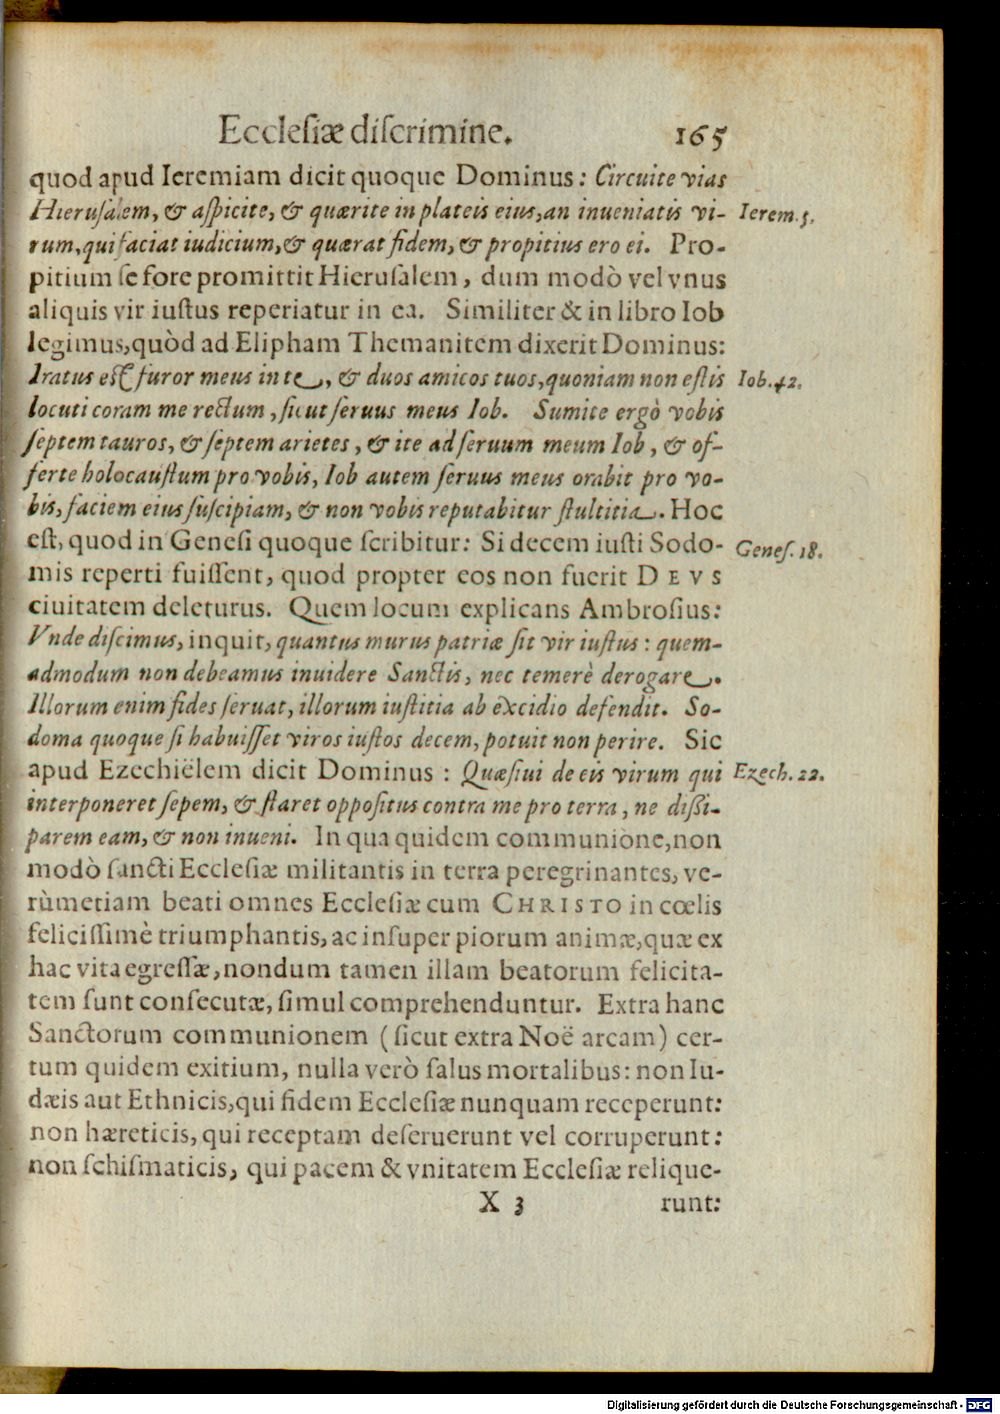 Eccleſiæ diſcrimine. 165
quod apud Ieremiam dicit quoque Dominus: Circuite vias
Hieruſalem, & aſpicite, & quærite in plateis eius, an inueniatis vi- Ierem. 5.
rum, qui faciat iudicium, & quærat fidem, & propitius ero ei. Pro-
pitium ſe fore promittit Hieruſalem, dum modò vel vnus
aliquis vir iuſtus reperiatur in ea. Similiter & in libro Iob
legimus, quòd ad Elipham Themanitem dixerit Dominus:
Iratus eſt furor meus in te, & duos amicos tuos, quoniam non eſtis Iob. 42.
locuti coram me rectum, ſicut ſeruus meus Iob. Sumite ergò vobis
ſeptem tauros, & ſeptem arietes, & ite ad ſeruum meum Iob, & of-
ferte holocauſtum pro vobis, Iob autem ſeruus meus orabit pro vo-
bis, faciem eius ſuſcipiam, & non vobis reputabitur ſtultitia. Hoc
eſt, quod in Geneſi quoque ſcribitur: Si decem iuſti Sodo- Geneſ. 18.
mis reperti fuiſſent, quod propter eos non fuerit DEVS
ciuitatem deleturus. Quem locum explicans Ambroſius:
Vnde diſcimus, inquit, quantus murus patriæ ſit vir iuſtus: quem-
admodum non debeamus inuidere Sanctis, nec temerè derogare.
Illorum enim fides ſeruat, illorum iuſtitia ab excidio defendit. So-
doma quoque ſi habuiſſet viros iuſtos decem, potuit non perire. Sic
apud Ezechiëlem dicit Dominus: Quæſiui de eis virum qui Ezech. 22.
interponeret ſepem, & ſtaret oppoſitus contra me pro terra, ne diſſi-
parem eam, & non inueni. In qua quidem communione, non
modò ſancti Eccleſiæ militantis in terra peregrinantes, ve-
rùm etiam beati omnes Eccleſiæ cum CHRISTO in cœlis
feliciſſimè triumphantis, ac inſuper piorum animæ, quæ ex
hac vita egreſſæ, nondum tamen illam beatorum felicita-
tem ſunt conſecutæ, ſimul comprehenduntur. Extra hanc
Sanctorum communionem (ſicut extra Noë arcam) cer-
tum quidem exitium, nulla verò ſalus mortalibus: non Iu-
dæis aut Ethnicis, qui fidem Eccleſiæ nunquam receperunt:
non hæreticis, qui receptam deſeruerunt vel corruperunt:
non ſchiſmaticis, qui pacem & vnitatem Eccleſiæ relique-
X 3 runt:
Digitalisierung gefördert durch die Deutsche Forschungsgemeinschaft - DFG